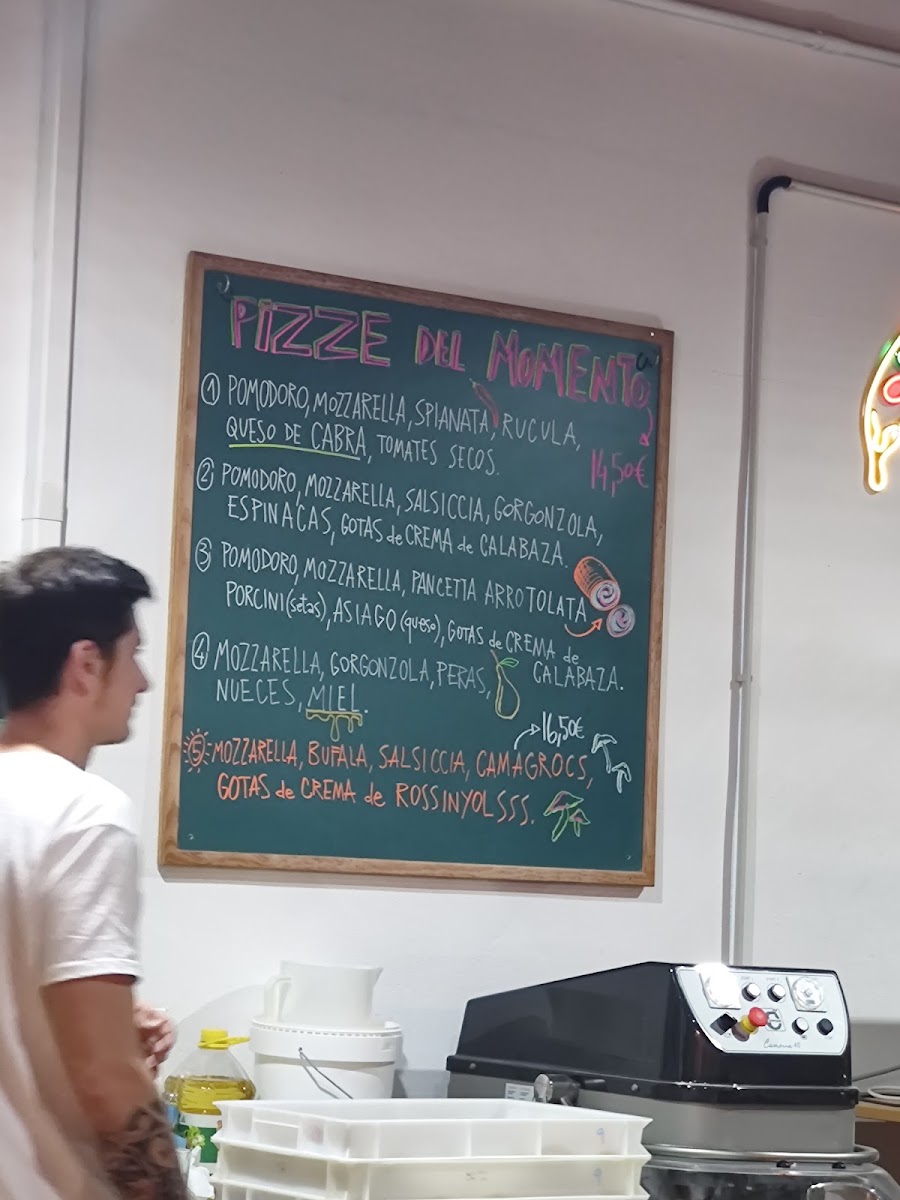 PIZZE DEL MOMENTO
① POMODORO, MOZZARELLA, SPIANATA, RUCULA,
QUESO DE CABRA, TOMATES SECOS.
14,50€
② POMODORO, MOZZARELLA, SALSICCIA, GORGONZOLA,
ESPINACAS, GOTAS de CREMA de CALABAZA.
③ POMODORO, MOZZARELLA, PANCETTA ARROTOLATA
PORCINI (setas), ASIAGO (queso), GOTAS de CREMA de
CALABAZA.
④ MOZZARELLA, GORGONZOLA, PERAS,
NUECES, MIEL.
16,50€
⑤ MOZZARELLA, BUFALA, SALSICCIA, CAMAGROCS,
GOTAS de CREMA de ROSSINYOLSSS.